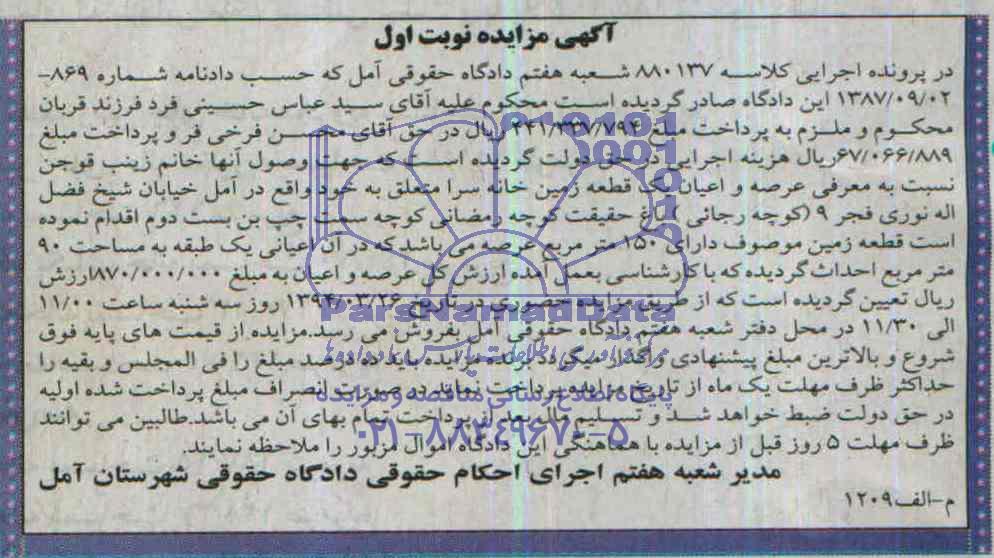 آگهی مزایده نوبت اول
در پرونده اجرایی کلاسه ۸۸۰۱۳۷ شعبه هفتم دادگاه حقوقی آمل که حسب دادنامه شماره ۸۶۹-
۱۳۸۷/۰۹/۰۲ این دادگاه صادر گردیده است محکوم علیه آقای سید عباس حسینی فرد فرزند قربان
محکوم و ملزم به پرداخت مبلغ ریال در حق آقای محسن فرخی فر و پرداخت مبلغ
۶۷/۰۶۶/۸۸۹ریال هزینه اجرایی در حق دولت گردیده است که جهت وصول آنها خانم زینب قوجن
نسبت به معرفی عرصه و اعیان یک قطعه زمین خانه سرا متعلق به خود واقع در آمل خیابان شیخ فضل
اله نوری فجر ۹ (کوچه رجائی) باغ حقیقت کوچه رمضانی کوچه سمت چپ بن بست دوم اقدام نموده
است قطعه زمین موصوف دارای ۱۵۰ متر مربع عرصه می باشد که در آن اعیانی یک طبقه به مساحت ۹۰
متر مربع احداث گردیده که با کارشناسی بعمل آمده ارزش کل عرصه و اعیان به مبلغ ۱/۸۷۰/۰۰۰/۰۰۰ارزش
ریال تعیین گردیده است که از طریق مزایده حضوری در تاریخ ۱۳۹۴/۰۳/۲۶ روز سه شنبه ساعت ۱۱/۰۰
الی ۱۱/۳۰ در محل دفتر شعبه هفتم دادگاه حقوقی آمل بفروش می رسد.مزایده از قیمت های پایه فوق
شروع و بالاترین مبلغ پیشنهادی واگذار میگردد برنده مزایده باید ده درصد مبلغ را فی المجلس و بقیه را
حداکثر ظرف مهلت یک ماه از تاریخ مزایده پرداخت نماید در صورت انصراف مبلغ پرداخت شده اولیه
در حق دولت ضبط خواهد شد و تسلیم مال بعد از پرداخت تمام بهای آن می باشد.طالبین می توانند
ظرف مهلت ۵ روز قبل از مزایده با هماهنگی این دادگاه اموال مزبور را ملاحظه نمایند.
مدیر شعبه هفتم اجرای احکام حقوقی دادگاه حقوقی شهرستان آمل
م-الف۱۲۰۹
ParsNamadData
پایگاه اطلاع رسانی مناقصه و مزایده
۰۲۱-۸۸۳۴۹۶۷۰-۵